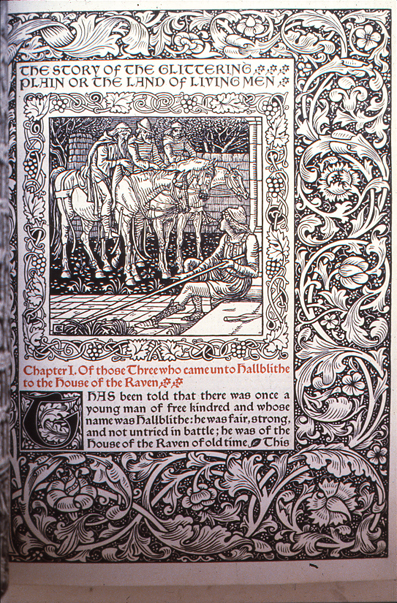 THE STORY OF THE GLITTERING
PLAIN OR THE LAND OF LIVING MEN
Chapter I. Of those Three who came unto Hallblithe
to the House of the Raven
IT HAS been told that there was once a
young man of free kindred and whose
name was Hallblithe: he was fair, strong,
and not untried in battle; he was of the
House of the Raven of old time. This